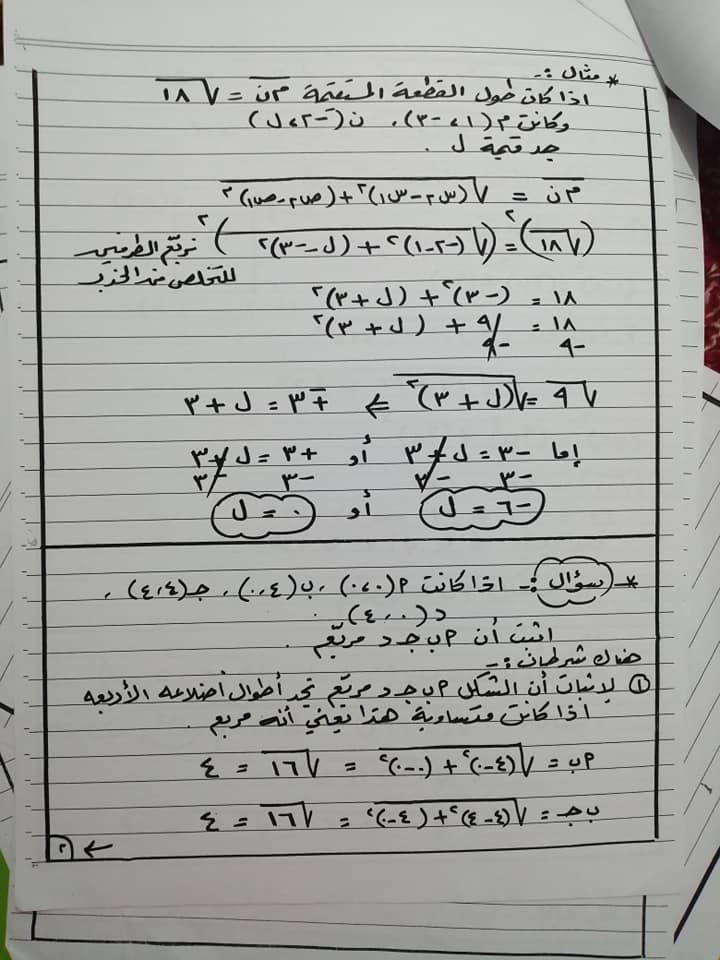 * مثال :-
اذا كان طول القطعة المستقيمة م ن = √١٨
وكانت م (١ ، -٣) ، ن (-٢ ، ل)
جد قيمة ل .
م ن = √(س٢ - س١)² + (ص٢ - ص١)²
(√١٨)² = (√(-٢-١)² + (ل--٣)²)² نربّع الطرفين
للتخلص من الجذر
١٨ = (-٣)² + (ل+٣)²
١٨ = ٩ + (ل+٣)²
-٩ -٩
√٩ = √(ل+٣)² ⇐ ∓٣ = ل+٣
إما -٣ = ل+٣ أو +٣ = ل+٣
-٣ -٣ -٣ -٣
-٦ = ل أو ٠ = ل
* سؤال :- اذا كانت م(٠،٠) ، ب(٤،٠) ، جـ(٤،٤) ،
د(٠،٤) .
اثبت أن م ب جـ د مربّع .
هناك شرطان :-
① لإثبات أن الشكل م ب جـ د مربّع نجد أطوال أضلاعه الأربعه
اذا كانت متساوية هذا يعني أنه مربع .
م ب = √(٤-٠)² + (٠-٠)² = √١٦ = ٤
ب جـ = √(٤-٤)² + (٤-٠)² = √١٦ = ٤
← ٢